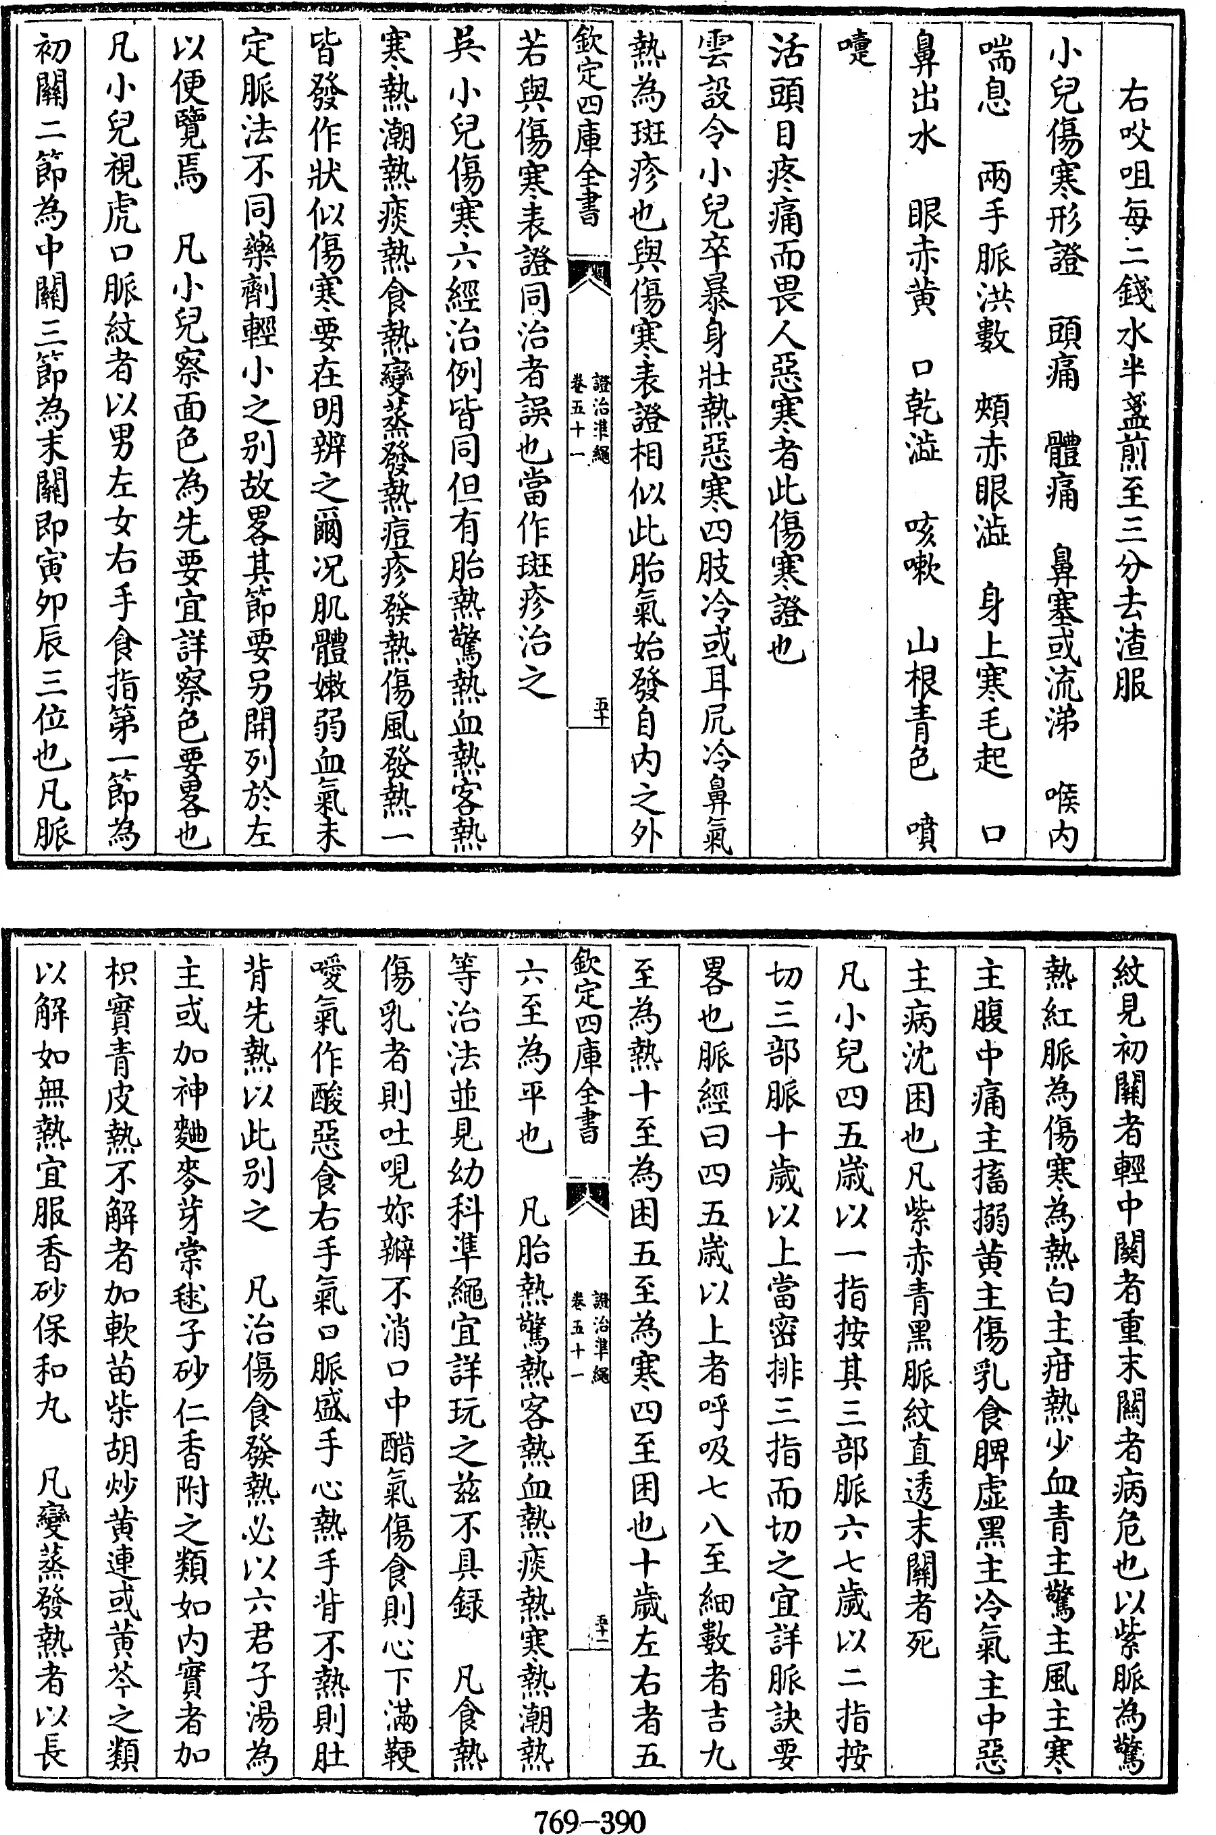 右㕮咀每二錢水半盞煎至三分去渣服
小兒傷寒形證　頭痛　體痛　鼻塞或流涕　喉内
喘息　兩手脈洪數　頰赤眼澁　身上寒毛起　口
鼻出水　眼赤黄　口乾澁　咳嗽　山根青色　噴
嚏
活頭目疼痛而畏人惡寒者此傷寒證也
雲設令小兒卒暴身壯熱惡寒四肢冷或耳尻冷鼻氣
熱為斑疹也與傷寒表證相似此胎氣始發自内之外
欽定四庫全書
證治準繩
卷五十一
五十
若與傷寒表證同治者誤也當作斑疹治之
吳　小兒傷寒六經治例皆同但有胎熱驚熱血熱客熱
寒熱潮熱痰熱食熱變蒸發熱痘疹發熱傷風發熱一
皆發作狀似傷寒要在明辨之爾况肌體嫩弱血氣未
定脈法不同藥劑輕小之别故畧其節要另開列於左
以便覽焉　凡小兒察面色為先要宜詳察色要畧也
凡小兒視虎口脈紋者以男左女右手食指第一節為
初關二節為中關三節為末關即寅夘辰三位也凡脈
紋見初關者輕中關者重末關者病危也以紫脈為驚
熱紅脈為傷寒為熱白主疳熱少血青主驚主風主寒
主腹中痛主搐搦黄主傷乳食脾虚黑主冷氣主中惡
主病沈困也凡紫赤青黑脈紋直透末關者死
凡小兒四五歲以一指按其三部脈六七歲以二指按
切三部脈十歲以上當密排三指而切之宜詳脈訣要
畧也脈經曰四五歲以上者呼吸七八至細數者吉九
至為熱十至為困五至為寒四至困也十歲左右者五
欽定四庫全書
證治準繩
卷五十一
五十一
六至為平也　凡胎熱驚熱客熱血熱痰熱寒熱潮熱
等治法並見幼科準繩宜詳玩之兹不具録　凡食熱
傷乳者則吐哯妳瓣不消口中醋氣傷食則心下滿鞕
噯氣作酸惡食右手氣口脈盛手心熱手背不熱則肚
背先熱以此别之　凡治傷食發熱必以六君子湯為
主或加神麯麥芽棠毬子砂仁香附之類如内實者加
枳實青皮熱不解者加軟苗柴胡炒黄連或黄芩之類
以解如無熱宜服香砂保和丸　凡變蒸發熱者以長
769-390